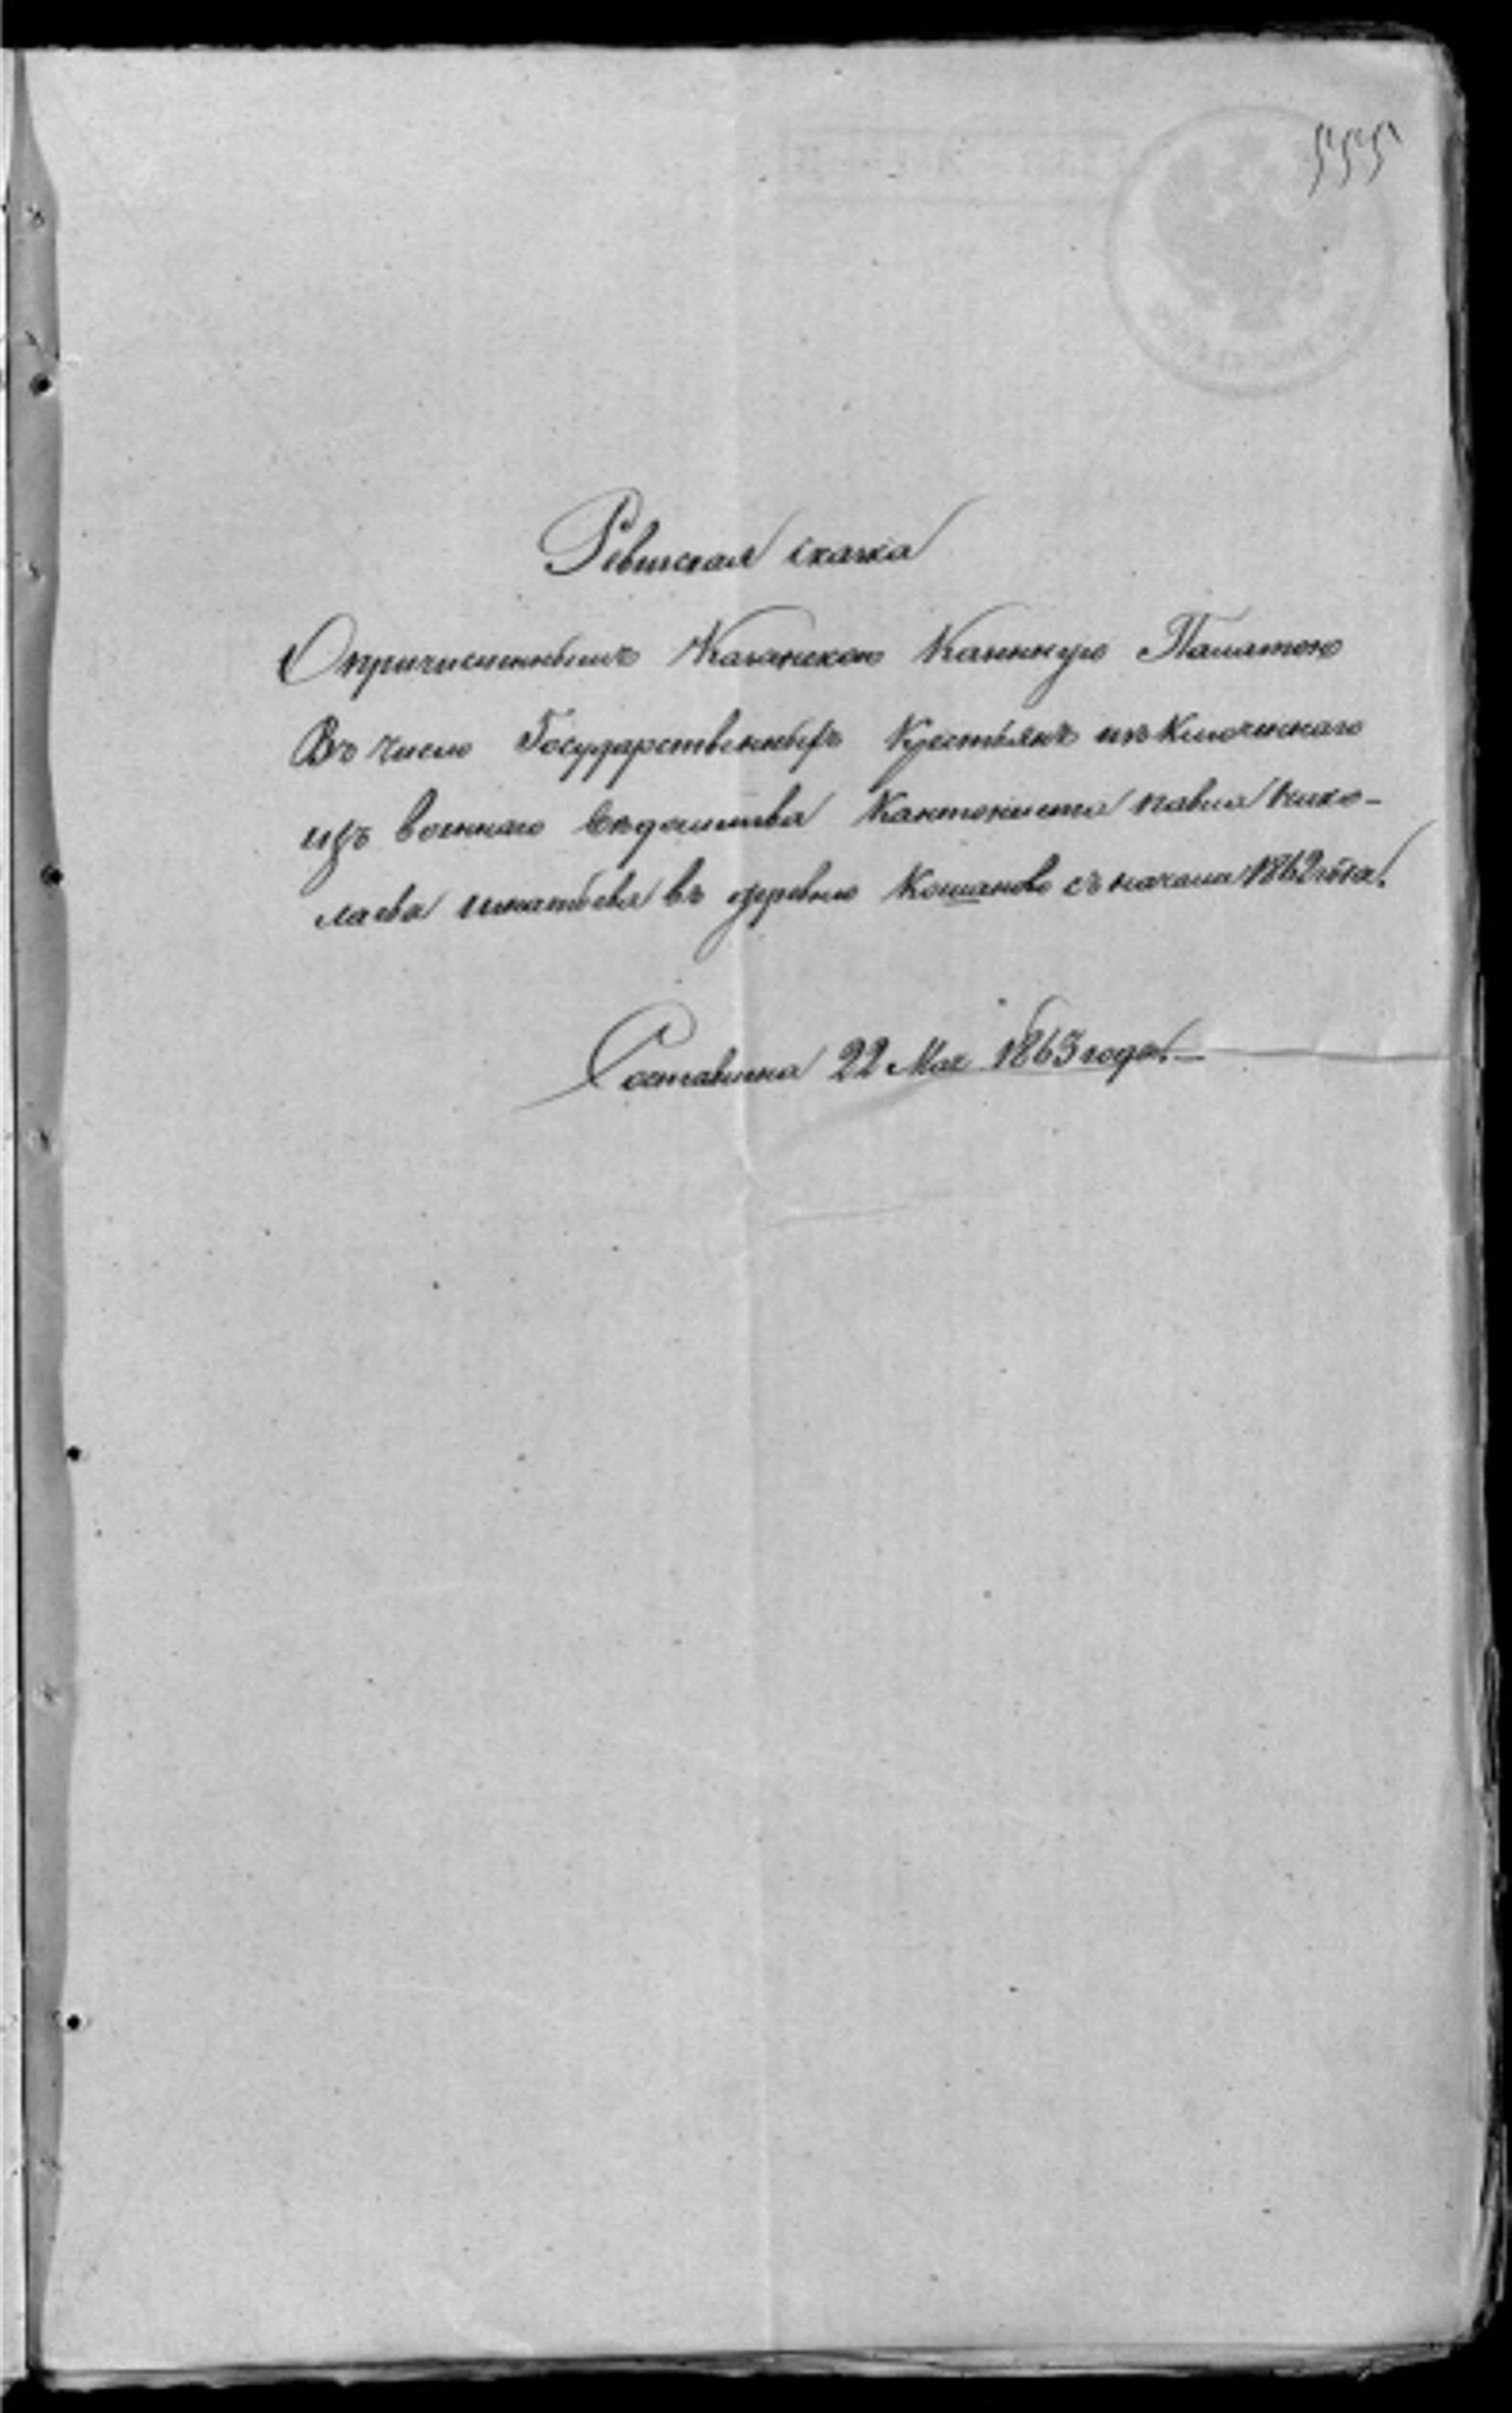 555
Ревиская скаска
Опричисленныхъ Казанскою Казенную Палатою
Въ число Государственныхъ Крестьянъ изъключеннаго
изъ военнаго вѣдомства Кантониста павла Нико-
лаева игнатьева въ деревню Кошаково съ начала 1862 года.
Составлена 22 Мая 1863 года.